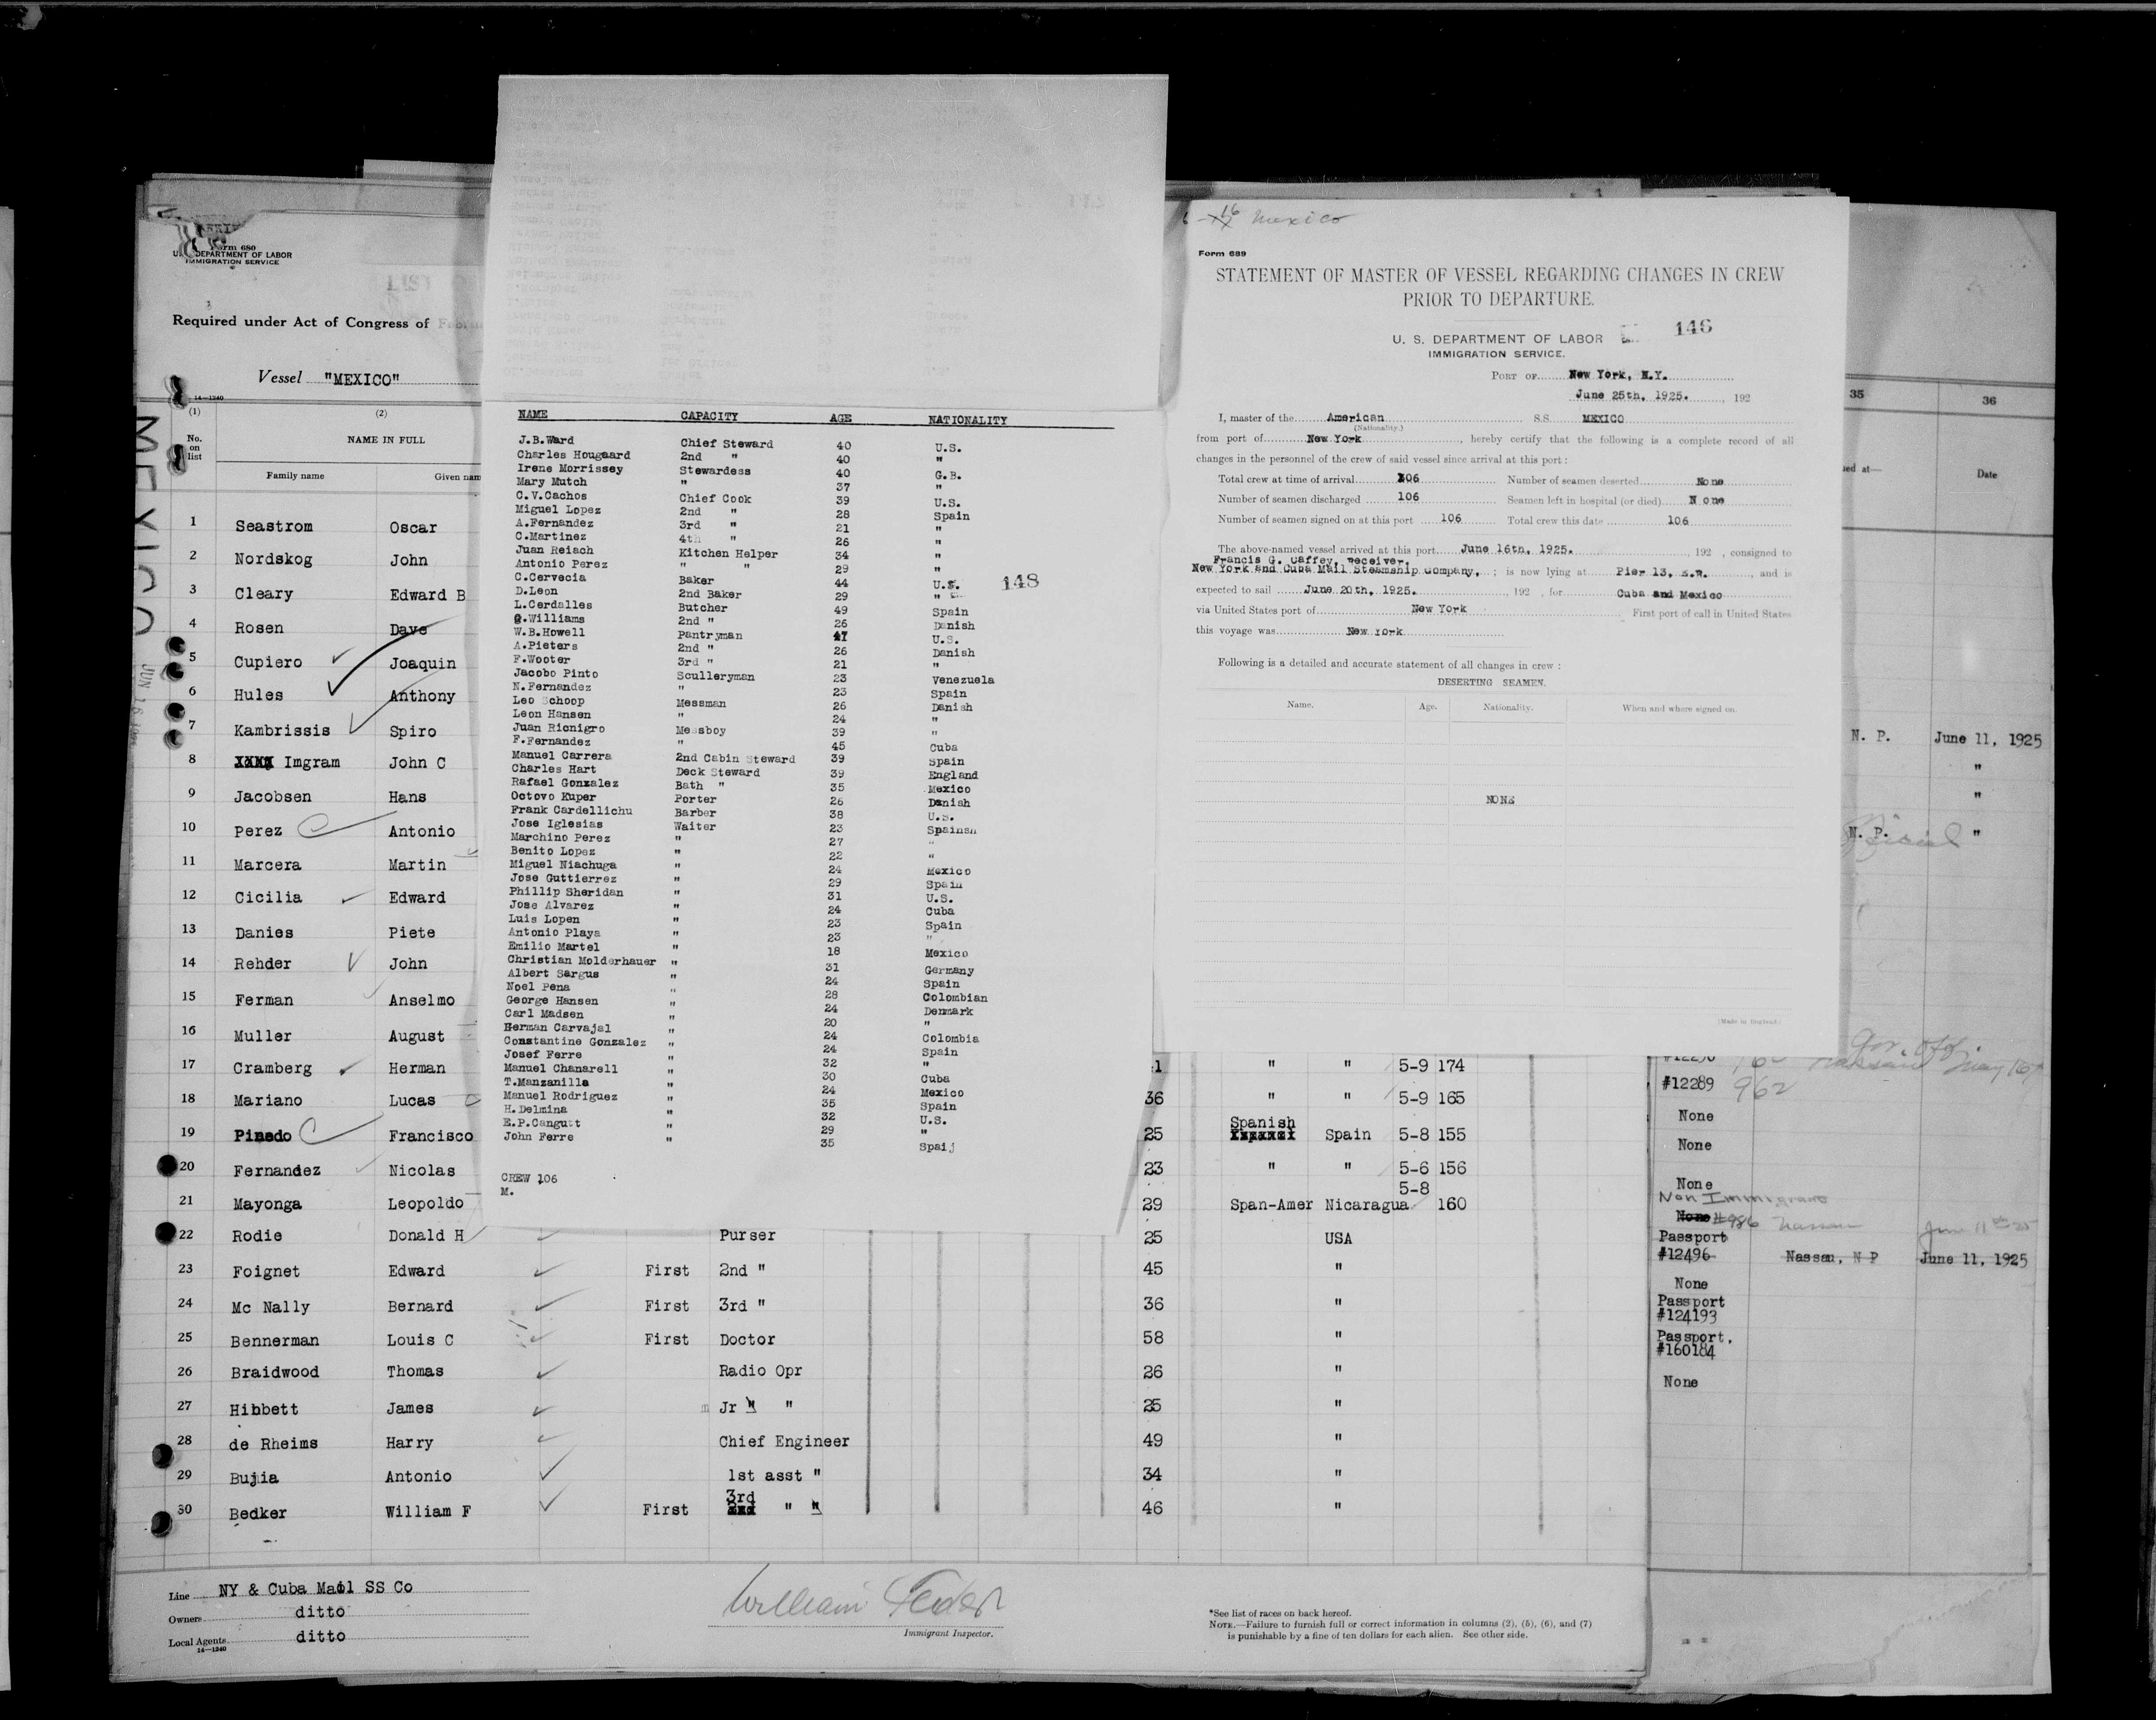 Form 680
U. S. DEPARTMENT OF LABOR
IMMIGRATION SERVICE
LIST
Required under Act of Congress of
Vessel "MEXICO"
14—1240
(1) (2)
No. on list
NAME IN FULL
Family name Given nam
MEXICO
1 Seastrom Oscar
2 Nordskog John
3 Cleary Edward B
4 Rosen Dave
5 Cupiero Joaquin
6 Hules Anthony
7 Kambrissis Spiro
8 XXXX Imgram John C
9 Jacobsen Hans
10 Perez Antonio
11 Marcera Martin
12 Cicilia Edward
13 Danies Piete
14 Rehder John
15 Ferman Anselmo
16 Muller August
17 Cramberg Herman
18 Mariano Lucas
19 Pinedo Francisco
20 Fernandez Nicolas
21 Mayonga Leopoldo
22 Rodie Donald H Purser 25 USA
23 Foignet Edward First 2nd " 45 "
24 Mc Nally Bernard First 3rd " 36 "
25 Bennerman Louis C First Doctor 58 "
26 Braidwood Thomas Radio Opr 26 "
27 Hibbett James Jr " " 25 "
28 de Rheims Harry Chief Engineer 49 "
29 Bujia Antonio 1st asst " 34 "
30 Bedker William F First 3rd " " 46 "
Line NY & Cuba Mail SS Co
Owners ditto
Local Agents ditto
14—1240
William
Immigrant Inspector.
*See list of races on back hereof.
NOTE.—Failure to furnish full or correct information in columns (2), (5), (6), and (7)
is punishable by a fine of ten dollars for each alien. See other side.
NAME CAPACITY AGE NATIONALITY
J.B.Ward Chief Steward 40 U.S.
Charles Hougaard 2nd " 40 "
Irene Morrissey Stewardess 40 G.B.
Mary Mutch " 37 "
C.V.Cachos Chief Cook 39 U.S.
Miguel Lopez 2nd " 28 Spain
A.Fernandez 3rd " 21 "
C.Martinez 4th " 26 "
Juan Reiach Kitchen Helper 34 "
Antonio Perez " " 29 "
C.Cervecia Baker 44 U.S.
D.Leon 2nd Baker 29 "
148
L.Cerdalles Butcher 49 Spain
G.Williams 2nd " 26 Danish
W.B.Howell Pantryman 47 U.S.
A.Pieters 2nd " 26 Danish
F.Wooter 3rd " 21 "
Jacobo Pinto Sculleryman 23 Venezuela
N.Fernandez " 23 Spain
Leo Schoop Messman 26 Danish
Leon Hansen " 24 "
Juan Rionigro Messboy 39 "
F.Fernandez " 45 Cuba
Manuel Carrera 2nd Cabin Steward 39 Spain
Charles Hart Deck Steward 39 England
Rafael Gonxalez Bath " 35 Mexico
Octovo Kuper Porter 26 Danish
Frank Cardellichu Barber 38 U.S.
Jose Iglesias Waiter 23 Spainsh
Marchino Perez " 27 "
Benito Lopez " 22 "
Miguel Niachuga " 24 Mexico
Jose Guttierrez " 29 Spain
Phillip Sheridan " 31 U.S.
Jose Alvarez " 24 Cuba
Luis Lopen " 23 Spain
Antonio Playa " 23 "
Emilio Martel " 18 Mexico
Christian Molderhauer " 31 Germany
Albert Sargus " 24 Spain
Noel Pena " 28 Colombian
George Hansen " 24 Denmark
Carl Madsen " 20 "
Herman Carvajal " 24 Colombia
Constantine Gonzalez " 24 Spain
Josef Ferre " 32 "
Manuel Chanarell " 30 Cuba
T.Manzanilla " 24 Mexico
Manuel Rodriguez " 35 Spain
H.Delmina " 32 U.S.
E.P.Cangutt " 29 "
John Ferre " 35 Spaij
CREW 106
M.
16 Mexico
Form 689
STATEMENT OF MASTER OF VESSEL REGARDING CHANGES IN CREW
PRIOR TO DEPARTURE.
146
U. S. DEPARTMENT OF LABOR
IMMIGRATION SERVICE.
PORT OF New York, N.Y.
June 25th, 1925. , 192
I, master of the American S.S. MEXICO
(Nationality.)
from port of New York , hereby certify that the following is a complete record of all
changes in the personnel of the crew of said vessel since arrival at this port:
Total crew at time of arrival 106 Number of seamen deserted None
Number of seamen discharged 106 Seamen left in hospital (or died) N one
Number of seamen signed on at this port 106 Total crew this date 106
The above-named vessel arrived at this port June 16th, 1925. , 192 , consigned to
Francis G. Caffey, Receiver,
New York and Cuba Mail Steamship Company, ; is now lying at Pier 13, E.R. , and is
expected to sail June 20th, 1925. , 192 , for Cuba and Mexico
via United States port of New York First port of call in United States
this voyage was New York
Following is a detailed and accurate statement of all changes in crew:
DESERTING SEAMEN.
Name. Age. Nationality. When and where signed on
NONE
(Made in England.)
1 " " 5-9 174
36 " " 5-9 165
25 Spanish Spain 5-8 155
23 " " 5-6 156
5-8
29 Span-Amer Nicaragua 160
35 36
ued at— Date
N. P. June 11, 1925
"
"
N. P. "
#12289 962
None
None
None
Non Immigrant
None #986 Nassau June 11
Passport
#12496 Nassau, N P June 11, 1925
None
Passport
#124193
Passport.
#160184
None